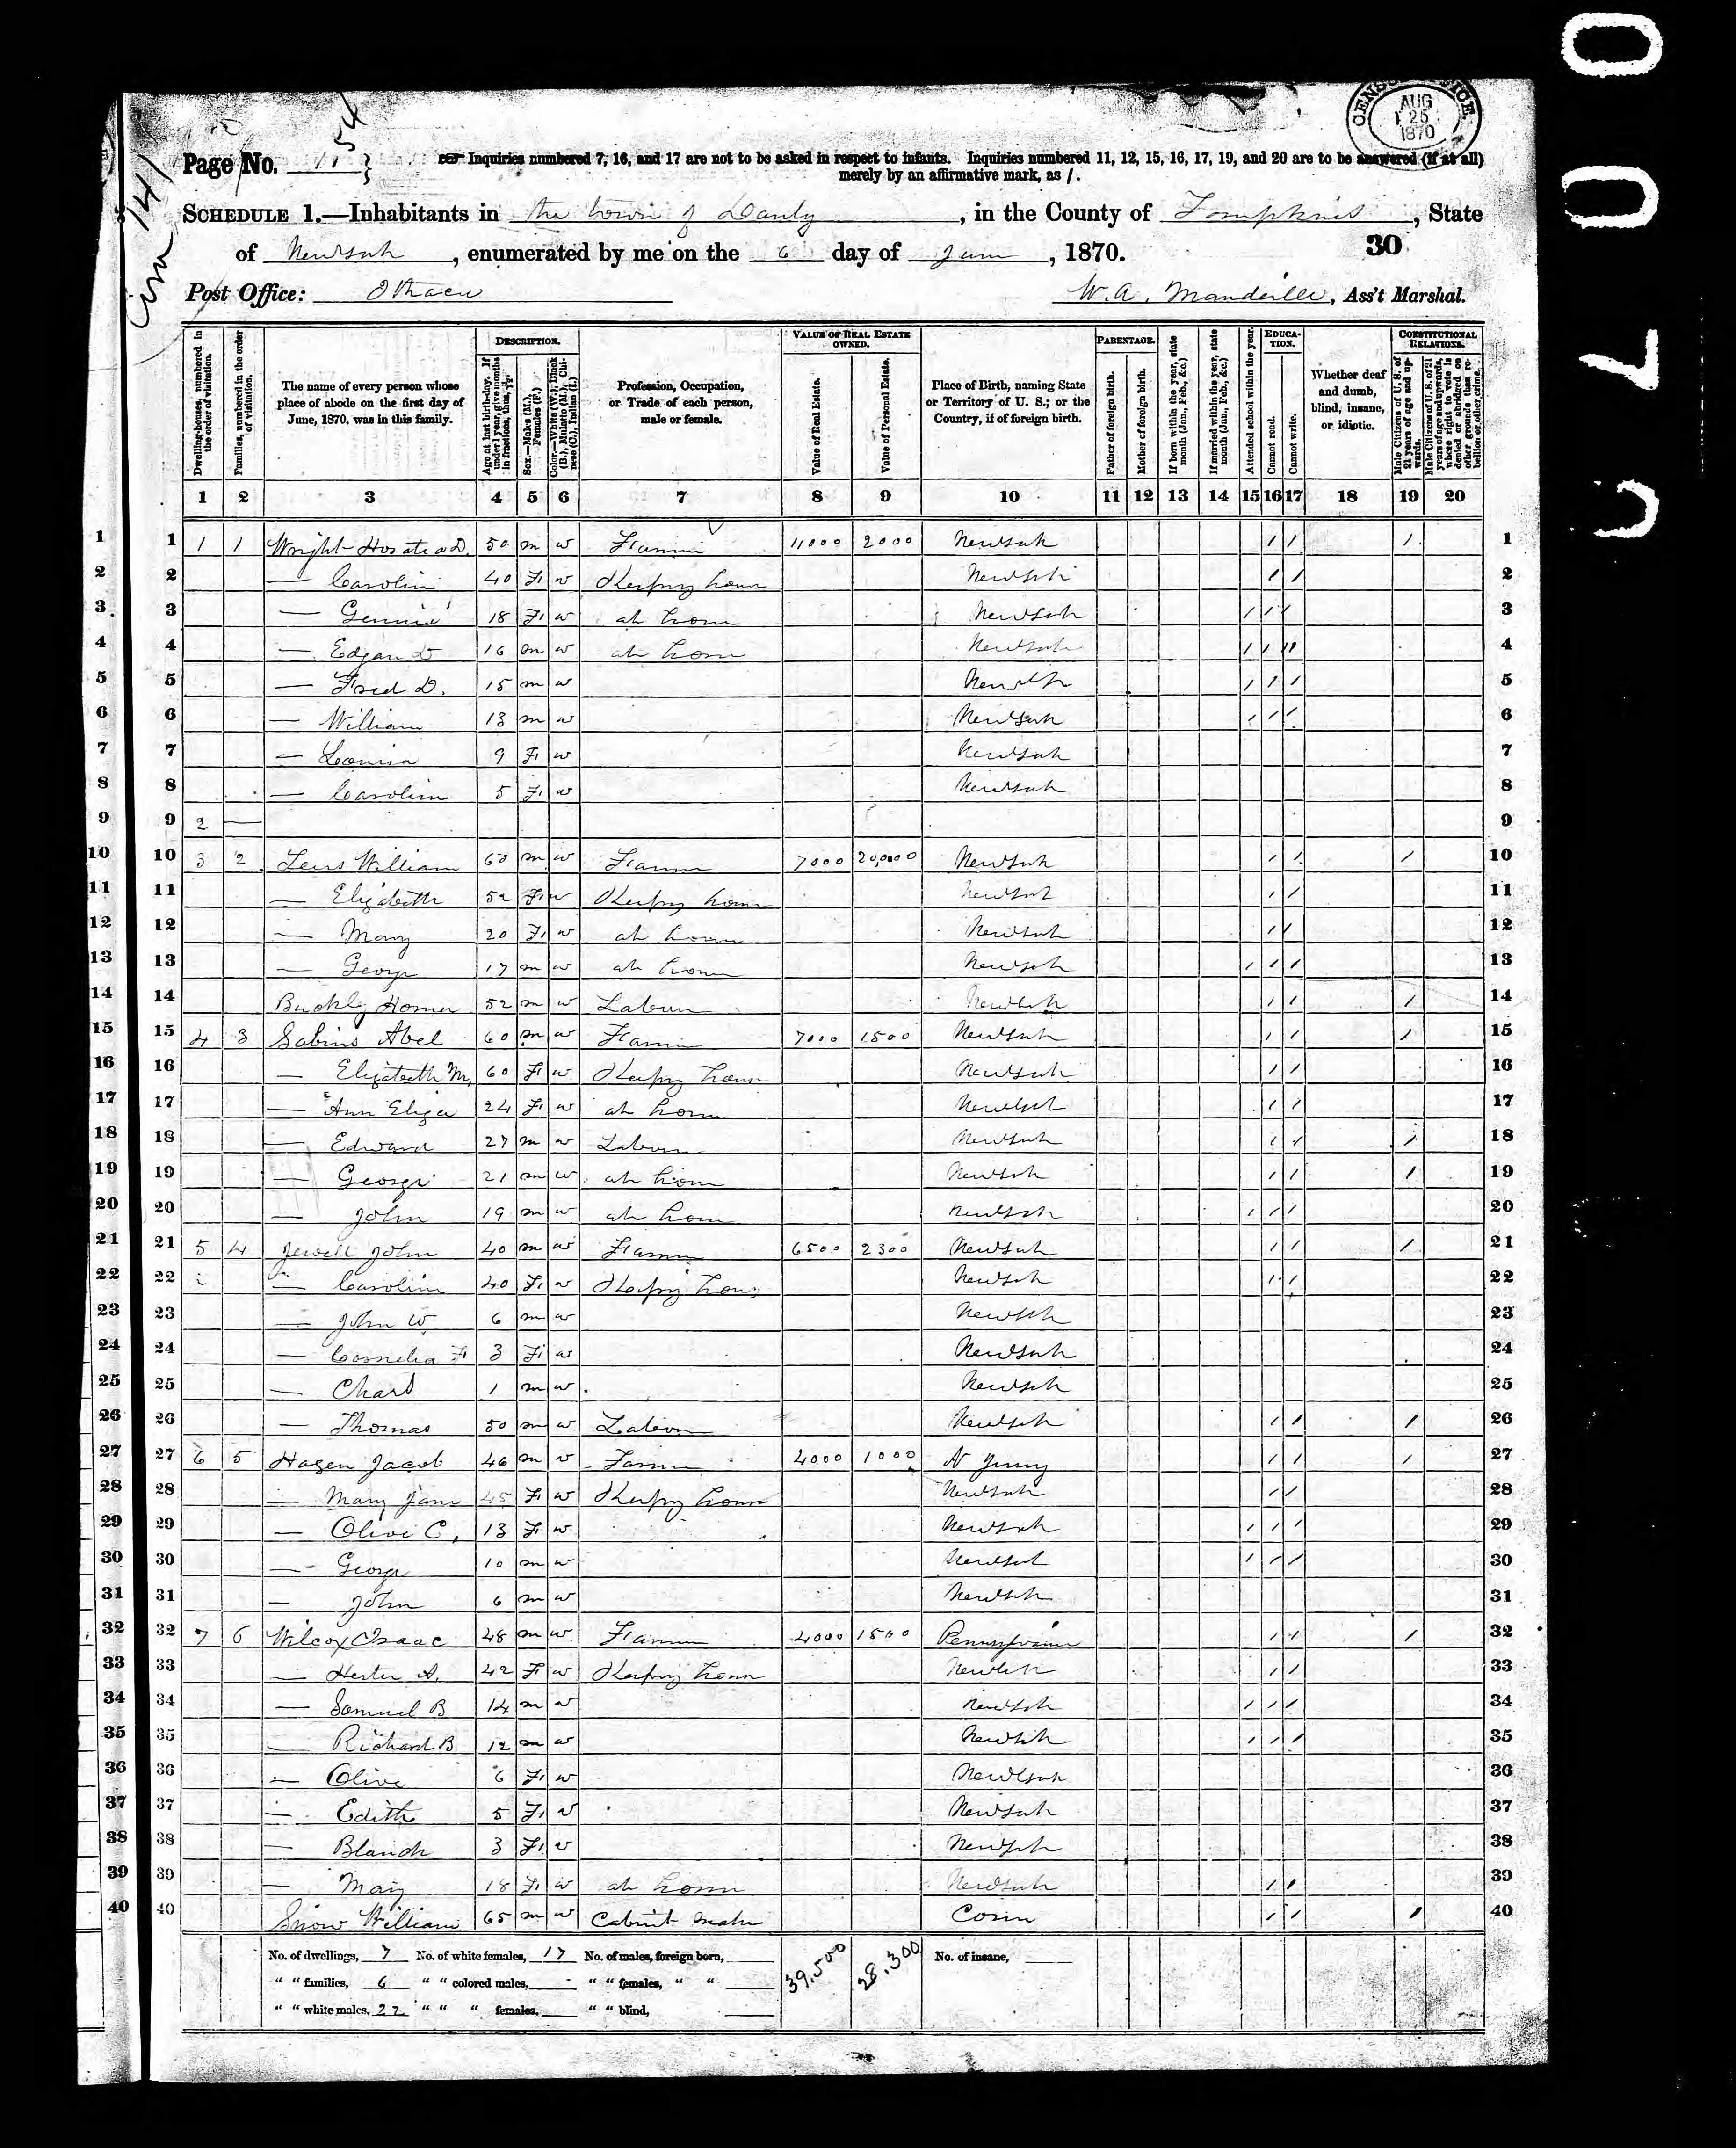 CENSUS OFFICE.
AUG
25
1870
Page No. 1
☞ Inquiries numbered 7, 16, and 17 are not to be asked in respect to infants. Inquiries numbered 11, 12, 15, 16, 17, 19, and 20 are to be answered (if at all)
merely by an affirmative mark, as /.
SCHEDULE 1.—Inhabitants in the town of Danby, in the County of Tompkins, State
of New York, enumerated by me on the 6 day of June, 1870. 30
Post Office: Ithaca W. A. Mandeville, Ass't Marshal.
Dwelling-houses, numbered in the order of visitation.
Families, numbered in the order of visitation.
The name of every person whose place of abode on the first day of June, 1870, was in this family.
DESCRIPTION.
Age at last birth-day. If under 1 year, give months in fractions, thus,
Sex.—Males (M.), Females (F.)
Color.—White (W.), Black (B.), Mulatto (M.), Chinese (C.), Indian (I.)
Profession, Occupation, or Trade of each person, male or female.
VALUE OF REAL ESTATE OWNED.
Value of Real Estate.
Value of Personal Estate.
Place of Birth, naming State or Territory of U. S.; or the Country, if of foreign birth.
PARENTAGE.
Father of foreign birth.
Mother of foreign birth.
If born within the year, state month (Jan., Feb., &c.)
If married within the year, state month (Jan., Feb., &c.)
Attended school within the year.
EDUCATION.
Cannot read.
Cannot write.
Whether deaf and dumb, blind, insane, or idiotic.
CONSTITUTIONAL RELATIONS.
Male Citizens of U. S. of 21 years of age and upwards.
Male Citizens of U. S. of 21 years of age and upwards, whose right to vote is denied or abridged on other grounds than rebellion or other crime.
1 2 3 4 5 6 7 8 9 10 11 12 13 14 15 16 17 18 19 20
1 1 1 Wright Horatio D. 50 m w Farmer 11000 2000 New York / / / 1
2 — Carolin 40 F w Keeping house New York / / 2
3 — Gennie 18 F w at home New York / / / 3
4 — Edgar D 16 m w at home New York / / // 4
5 — Fred D. 15 m w New York / / / 5
6 — William 13 m w New York / / / 6
7 — Louisa 9 F w New York 7
8 — Carolin 5 F w New York 8
9 2 — 9
10 3 2 Lewis William 60 m w Farmer 7000 20,000 New York / / / 10
11 — Elizabeth 52 F w Keeping house New York / / 11
12 — Mary 20 F w at home New York / / 12
13 — George 17 m w at home New York / / / 13
14 Buckly Homer 52 m w Laborer New York / / / 14
15 4 3 Sabins Abel 60 m w Farmer 7000 1500 New York / / / 15
16 — Elizabeth M. 60 F w Keeping house New York / / 16
17 — Ann Eliza 24 F w at home New York / / 17
18 — Edward 27 m w Laborer New York / / / 18
19 — George 21 m w at home New York / / / 19
20 — John 19 m w at home New York / / / 20
21 5 4 Jewell John 40 m w Farmer 6500 2300 New York / / / 21
22 — Carolin 40 F w Keeping house New York / / 22
23 — John W 6 m w New York 23
24 — Cornelia F 3 F w New York 24
25 — Chars 1 m w New York 25
26 — Thomas 50 m w Laborer New York / / / 26
27 6 5 Hagen Jacob 46 m w Farmer 4000 1000 N Jersey / / / 27
28 — Mary Jane 45 F w Keeping house New York / / 28
29 — Olive C, 13 F w New York / / / 29
30 — George 10 m w New York / / / 30
31 — John 6 m w New York 31
32 7 6 Wilcox Isaac 48 m w Farmer 4000 1500 Pennsylvania / / / 32
33 — Hester A. 42 F w Keeping house New York / / 33
34 — Samuel B 14 m w New York / / / 34
35 — Richard B 12 m w New York / / / 35
36 — Olive 6 F w New York 36
37 — Edith 5 F w New York 37
38 — Blanch 3 F w New York 38
39 — Mary 18 F w at home New York / / 39
40 Snow William 65 m w Cabinet maker Conn / / / 40
No. of dwellings, 7 No. of white females, 17 No. of males, foreign born, 39,500 28,300 No. of insane,
" " families, 6 " " colored males, - " " females, " "
" " white males, 22 " " " females, " " blind,